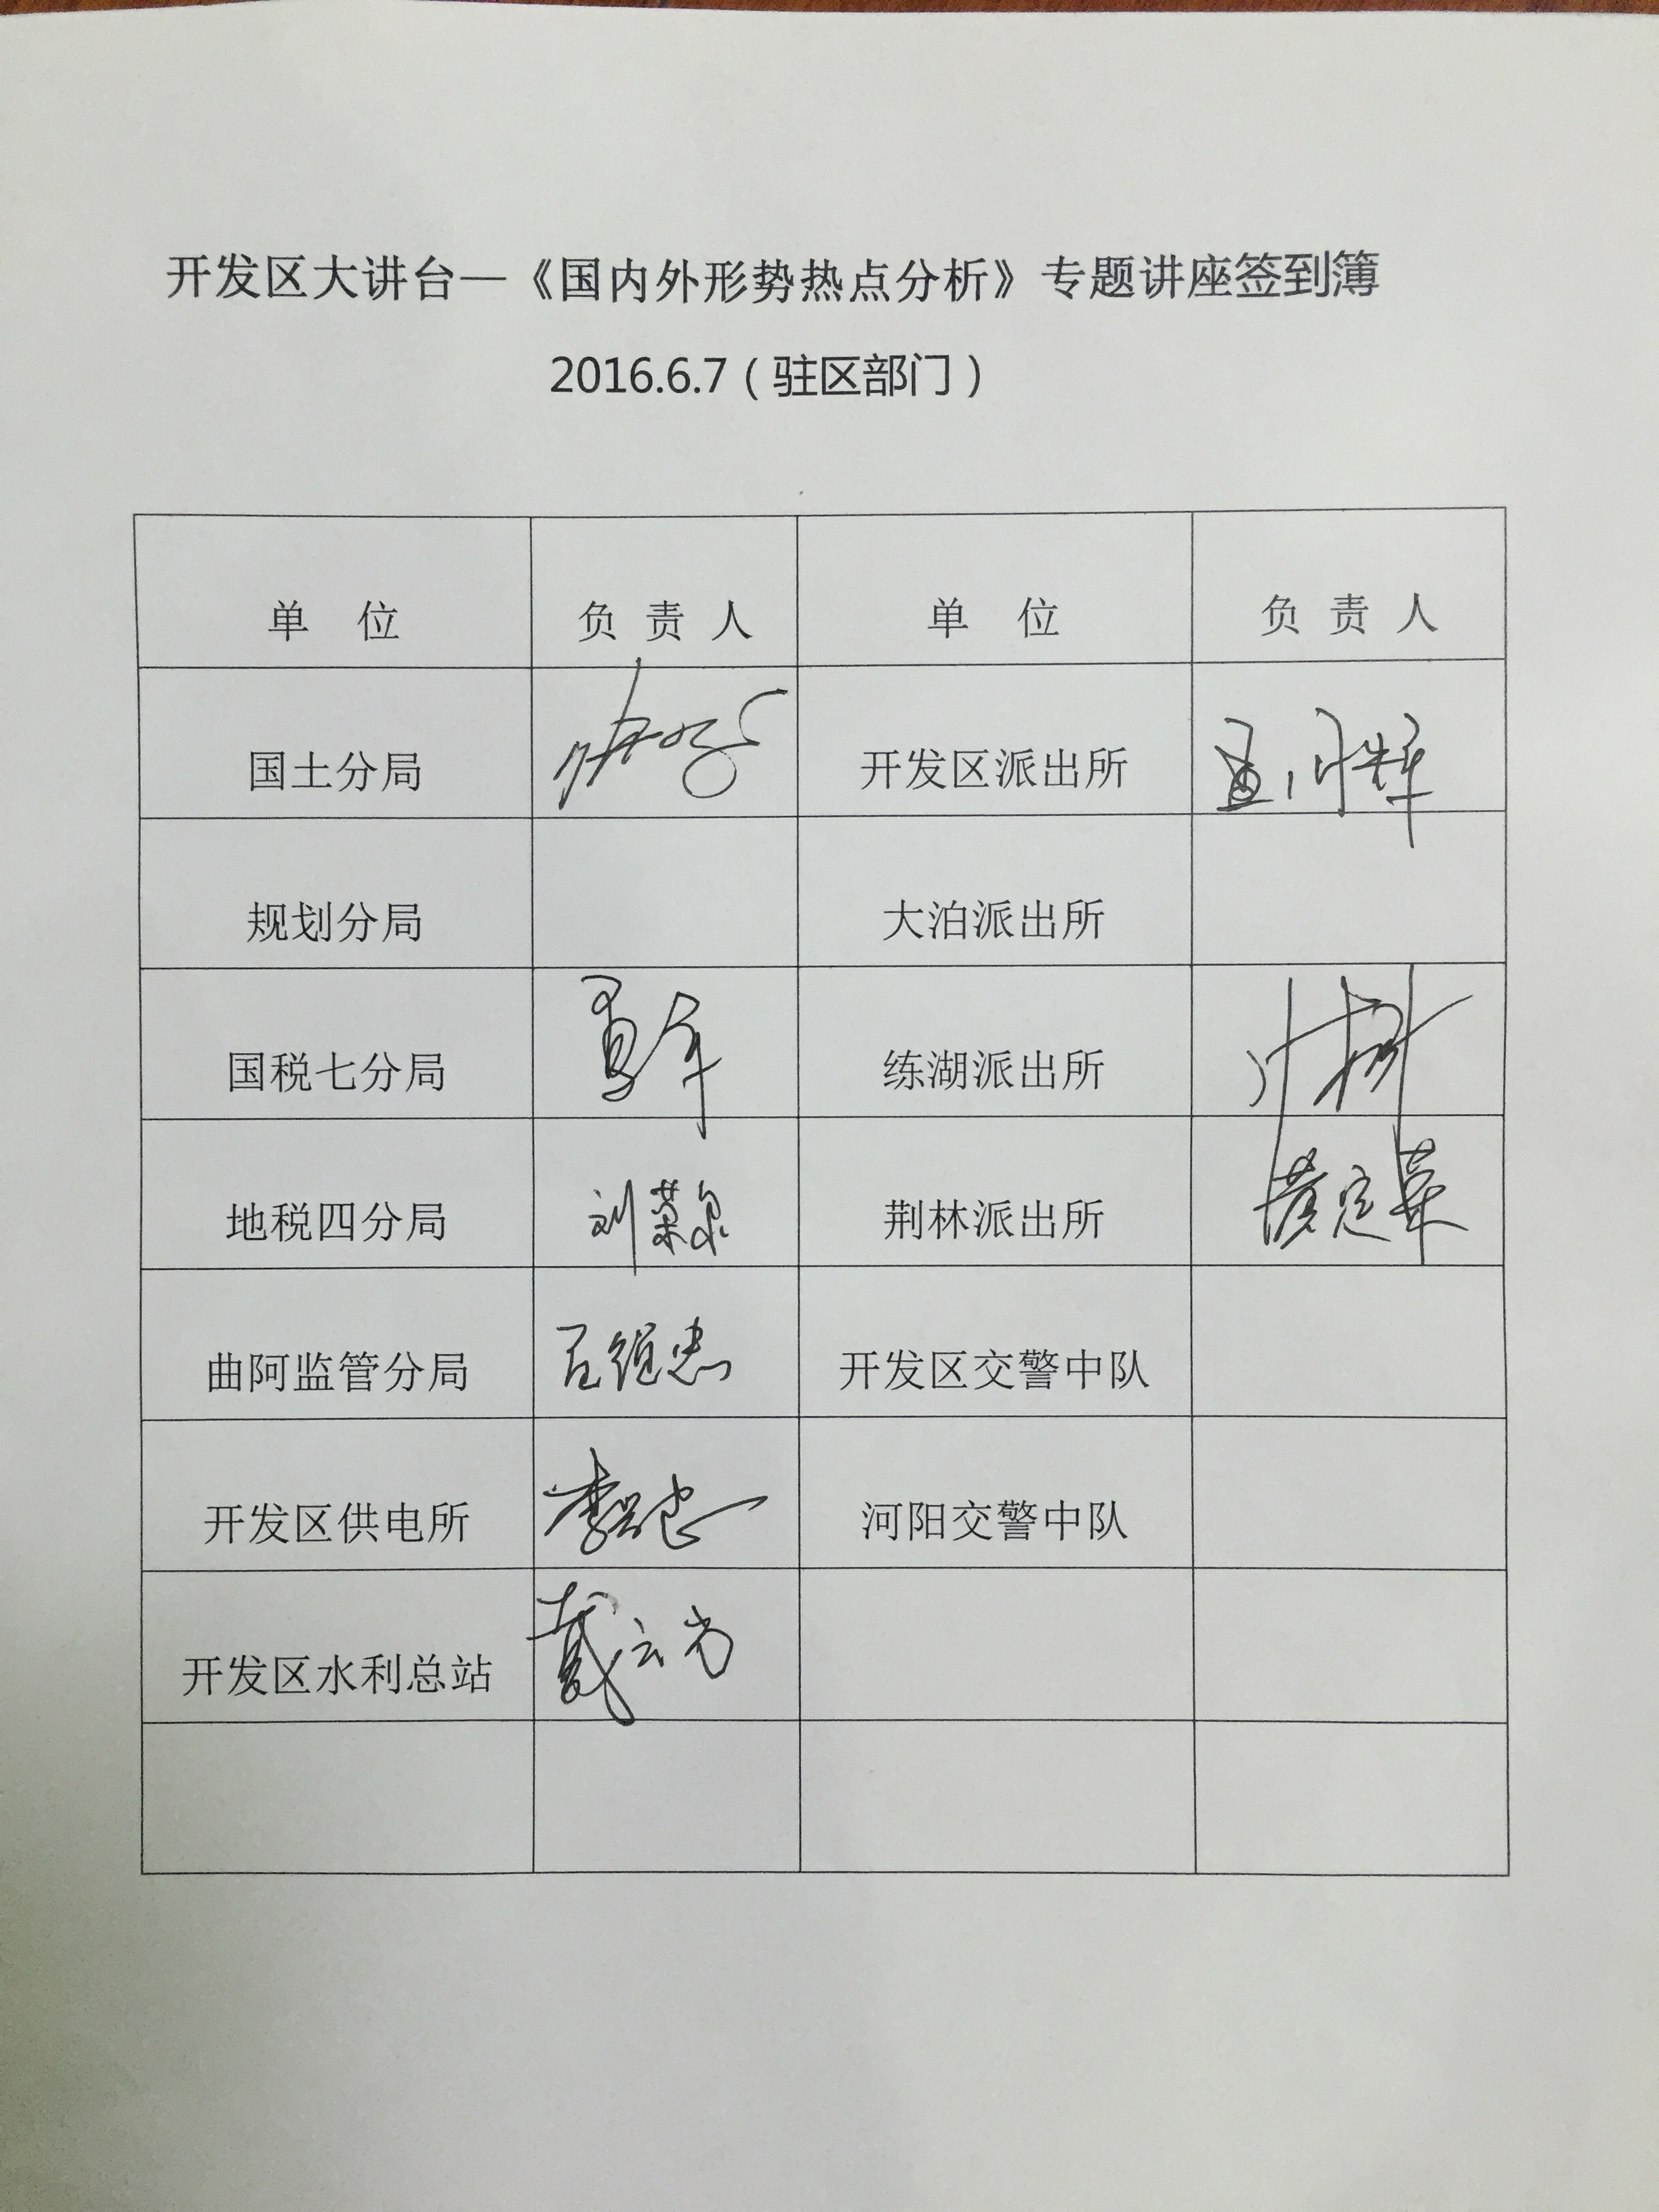 开发区大讲台—《国内外形势热点分析》专题讲座签到簿
2016.6.7（驻区部门）
单 位 负 责 人 单 位 负 责 人
国土分局 开发区派出所
规划分局 大泊派出所
国税七分局 练湖派出所
地税四分局 刘荣泉 荆林派出所 黄定华
曲阿监管分局 开发区交警中队
开发区供电所 河阳交警中队
开发区水利总站